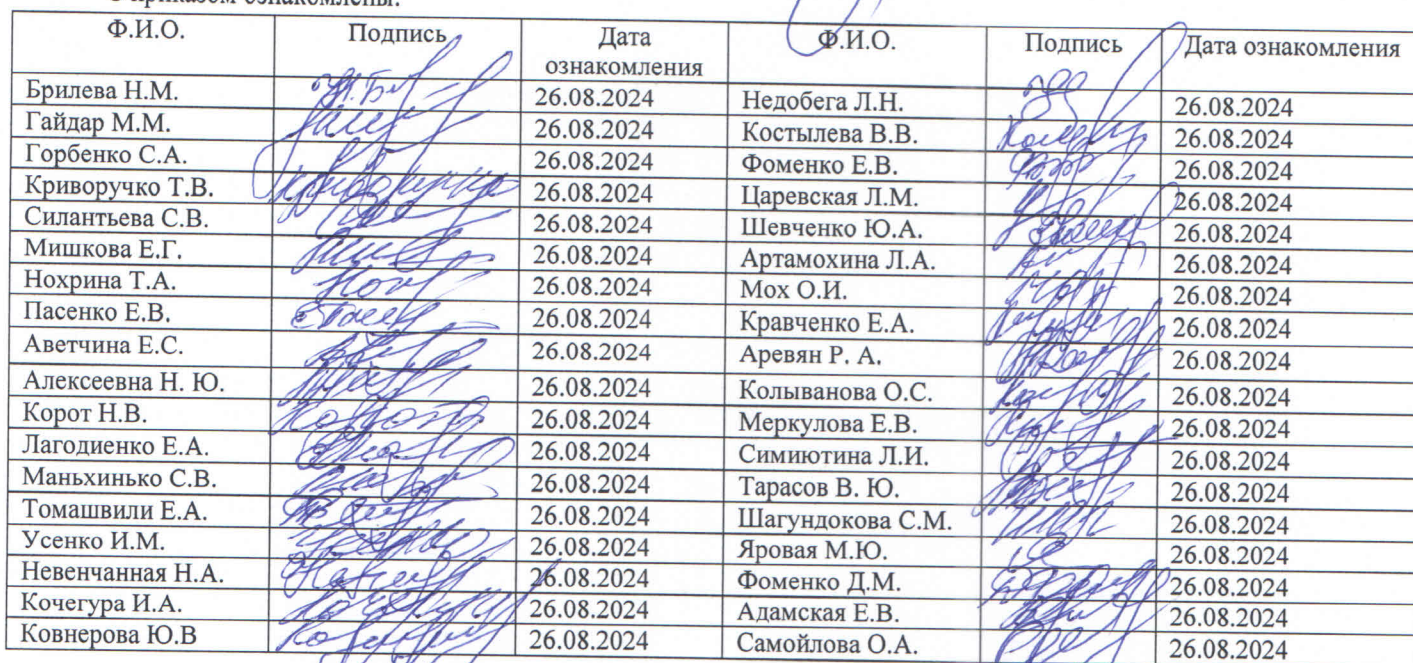 С приказом ознакомлены:
Ф.И.О. Подпись Дата ознакомления Ф.И.О. Подпись Дата ознакомления
Брилева Н.М. 26.08.2024 Недобега Л.Н. 26.08.2024
Гайдар М.М. 26.08.2024 Костылева В.В. 26.08.2024
Горбенко С.А. 26.08.2024 Фоменко Е.В. 26.08.2024
Криворучко Т.В. 26.08.2024 Царевская Л.М. 26.08.2024
Силантьева С.В. 26.08.2024 Шевченко Ю.А. 26.08.2024
Мишкова Е.Г. 26.08.2024 Артамохина Л.А. 26.08.2024
Нохрина Т.А. 26.08.2024 Мох О.И. 26.08.2024
Пасенко Е.В. 26.08.2024 Кравченко Е.А. 26.08.2024
Аветчина Е.С. 26.08.2024 Аревян Р. А. 26.08.2024
Алексеевна Н. Ю. 26.08.2024 Колыванова О.С. 26.08.2024
Корот Н.В. 26.08.2024 Меркулова Е.В. 26.08.2024
Лагодиенко Е.А. 26.08.2024 Симиютина Л.И. 26.08.2024
Маньхинько С.В. 26.08.2024 Тарасов В. Ю. 26.08.2024
Томашвили Е.А. 26.08.2024 Шагундокова С.М. 26.08.2024
Усенко И.М. 26.08.2024 Яровая М.Ю. 26.08.2024
Невенчанная Н.А. 26.08.2024 Фоменко Д.М. 26.08.2024
Кочегура И.А. 26.08.2024 Адамская Е.В. 26.08.2024
Ковнерова Ю.В 26.08.2024 Самойлова О.А. 26.08.2024